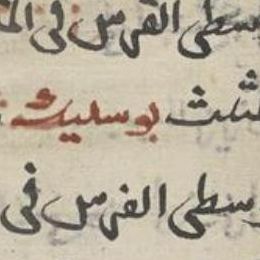 وسطى الفرس فى
مثلث بوسليك
وسطى الفرس فى